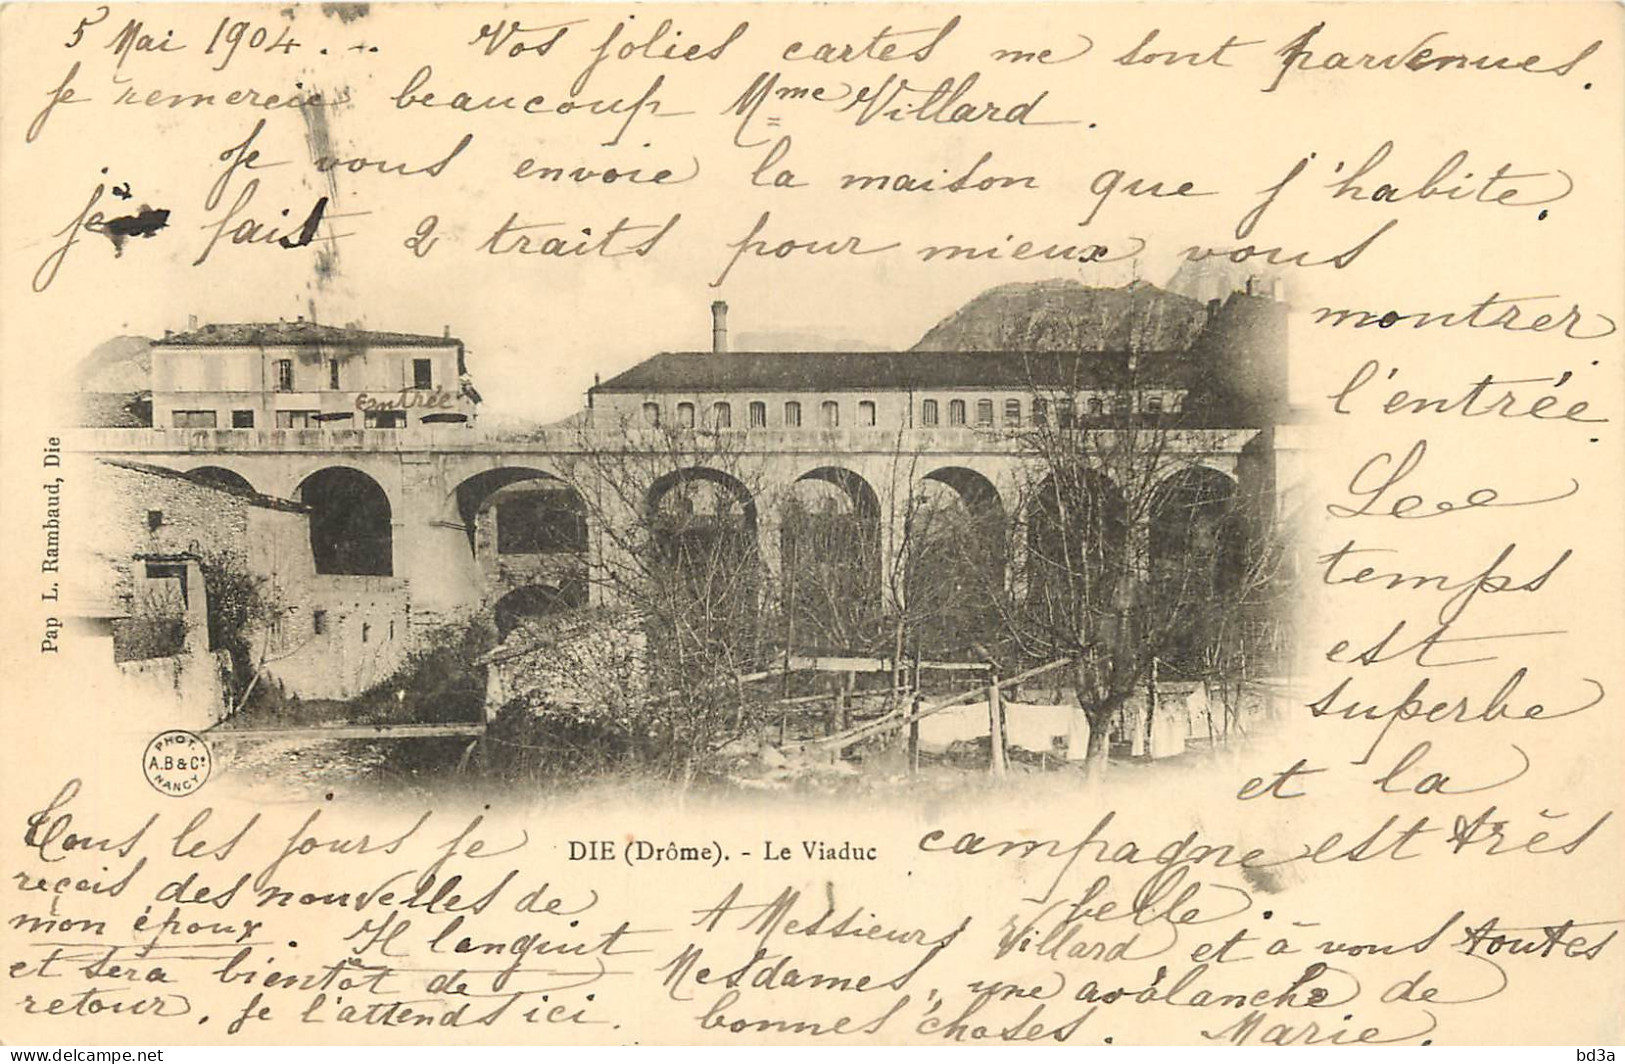 5 Mai 1904. .. Vos jolies cartes me sont parvenues.
Je remercie beaucoup Mme Villard.
Je vous envoie la maison que j'habite,
je fais 2 traits pour mieux vous
montrer
l'entrée.
Lee
temps
est
superbe
et la
campagne est très
belle.
Entrée
Pap L. Rambaud, Die
PHOT.
A.B & Cie
NANCY
DIE (Drôme). - Le Viaduc
Tous les jours je
reçois des nouvelles de
mon époux. Il languit
et sera bientôt de
retour. Je l'attends ici.
A Messieurs Villard et à vous toutes
Mesdames, une avalanche de
bonnes choses. Marie.
bd3a